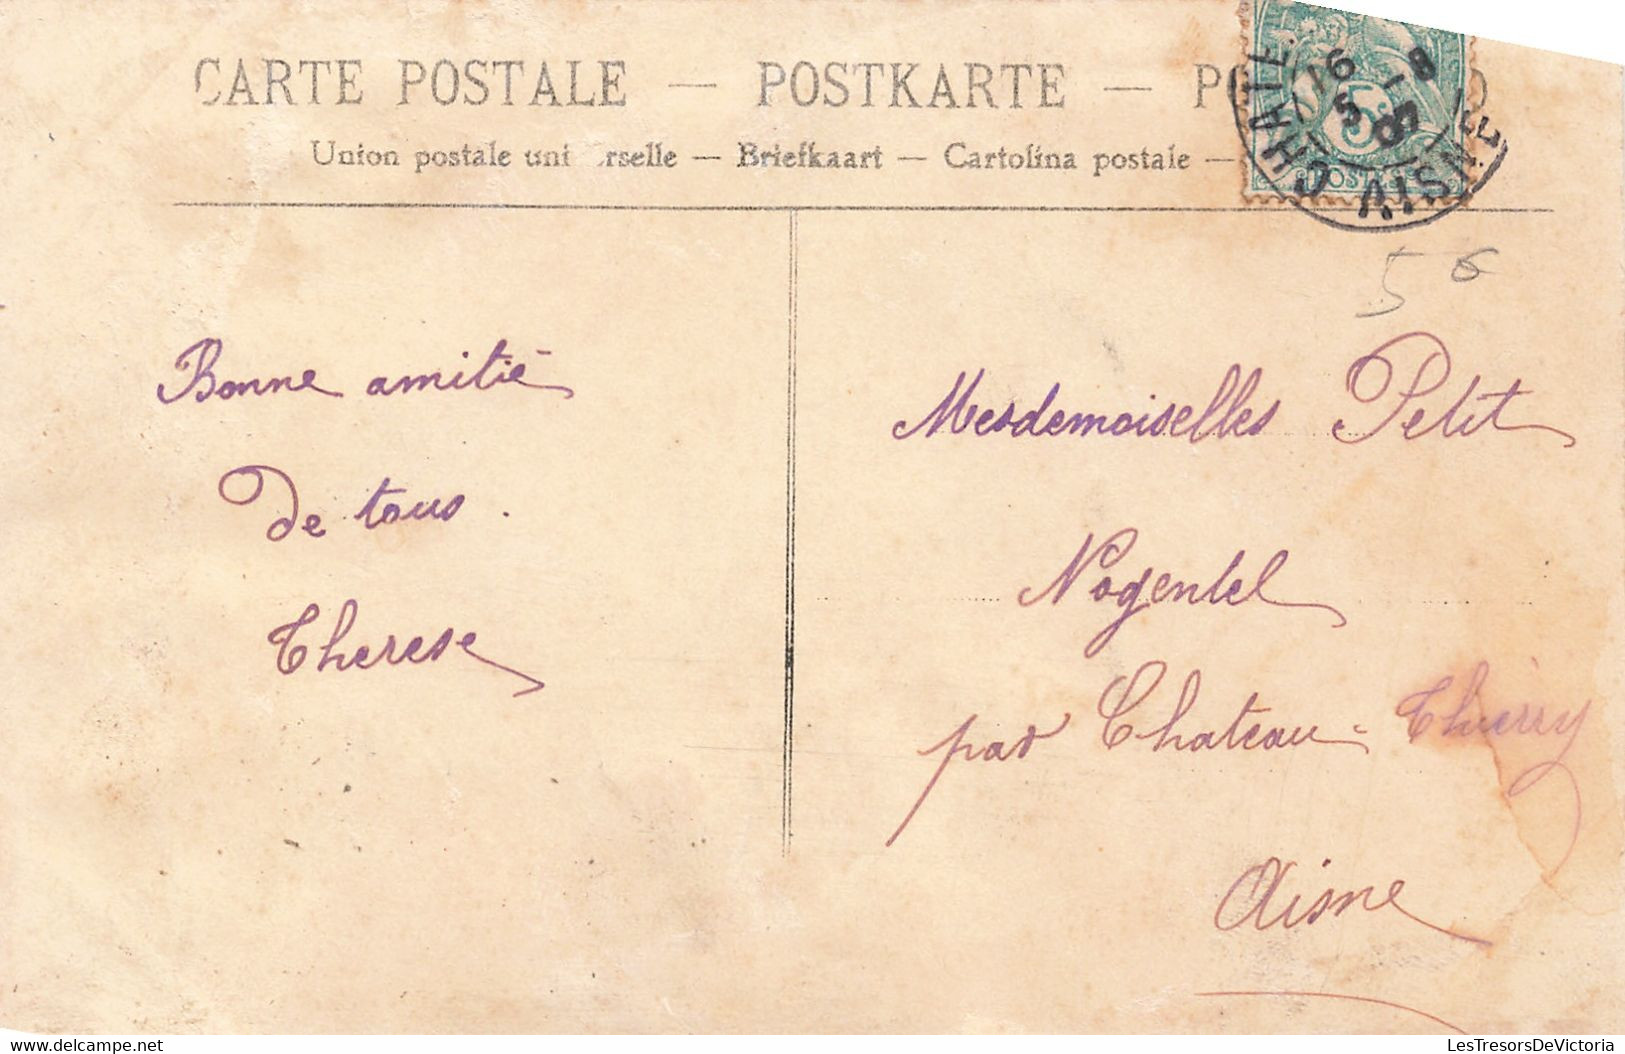 CARTE POSTALE — POSTKARTE —
Union postale uni rselle — Briefkaart — Cartolina postale —
5
POSTES
CHATE
AISNE
16
5
56
Bonne amitié
De tous.
Therese
Mesdemoiselles Petit
Nogentel
par Chateau-Thierry
Aisne
www.delcampe.net
LesTresorsDeVictoria